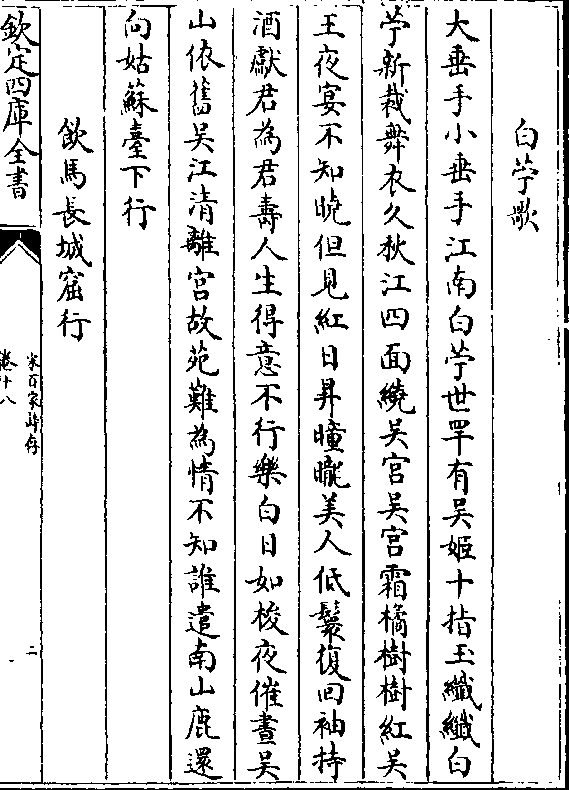 白苧歌
大垂手小垂手江南白苧世罕有吳姬十指玉纖纖白
苧新裁舞衣久秋江四面繞吳宫吳宫霜橘樹樹紅吳
王夜宴不知曉但見紅日昇曈曨美人低鬟復回袖持
酒獻君為君壽人生得意不行樂白日如梭夜催晝吳
山依舊吳江清離宫故苑難為情不知誰遣南山鹿還
向姑蘇臺下行
飲馬長城窟行
欽定四庫全書
宋百家詩存
卷十八
二